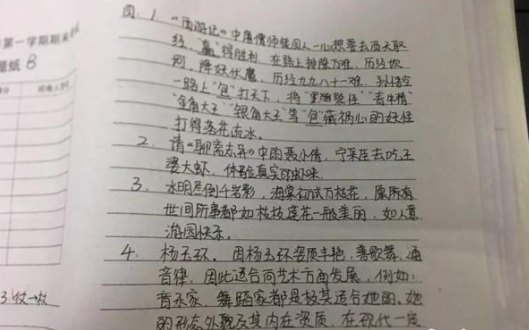 第一学期期末
题纸 B
四. 1. 《西游记》中唐僧师徒四人一心想要去西天取
经,赢得胜利 在路上排除万难,历经坎
坷,降妖伏魔,历经九九八十一难,孙悟空
一路上"包"打天下,将
"金角大王""银角大王"等"包"藏祸心的妖怪
打得落花流水。
2. 请《聊斋志异》中的聂小倩,宁采臣去吃王
婆大虾,体验真实的虾味
3. 水明尽倒千岩影,海棠初试万枝花,愿所有
世间所事都如枝枝莲花一般美丽,如人意
游园快乐。
4. 杨玉环。因杨玉环姿质丰艳,善歌舞,通
音律,因此适合向艺术方面发展,例如:
音乐家,舞蹈家都是极其适合她的。她
的形态外貌及其内在资质,在现代一定
3.仅一次